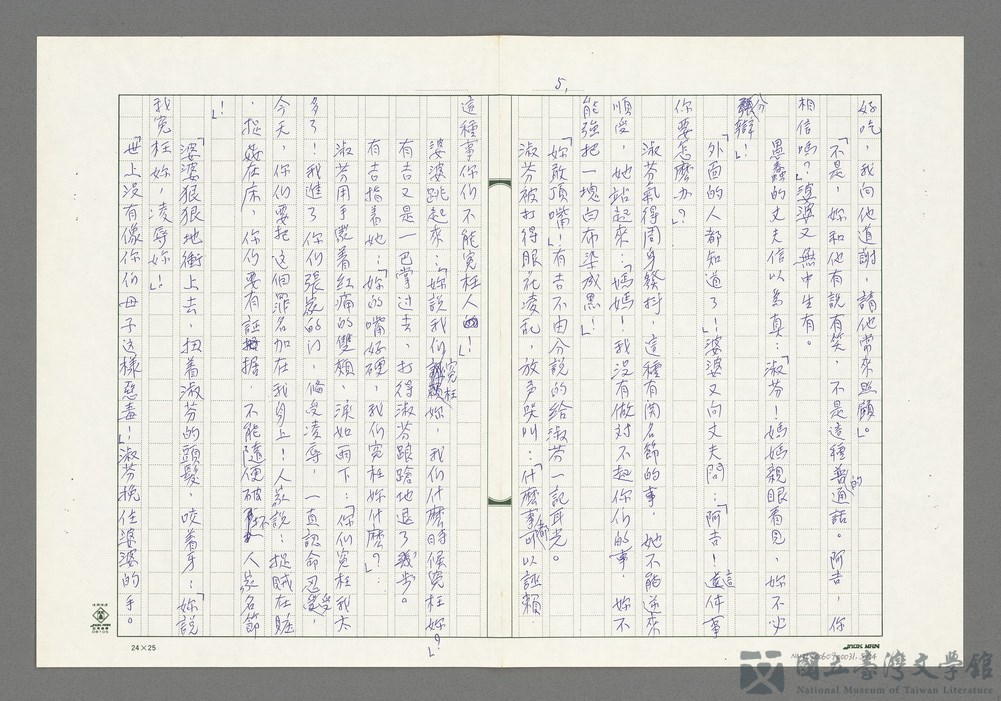 5.
好吃，我向他道謝，請他常來照顧。」
「不是，妳和他有說有笑，不是這種普通的話。阿吉，你
相信嗎？」婆婆又無中生有。
愚蠢的丈夫信以為真：「淑芬！媽媽親眼看見，妳不必
分辯！」
「外面的人都知道了！」婆婆又向丈夫問：「阿吉！這件事
你要怎麼办？」
淑芬氣得周身發抖，這種有関名節的事，她不能逆來
順受，她站起來：「媽媽！我沒有做对不起你们的事，妳不
能強把一塊白布染成黑！」
「妳敢頂嘴！」有吉不由分說的給淑芬一記耳光。
淑芬被打得眼花凌乱，放声哭叫：「什麼事都可以誣賴
這種事你们不能冤枉人！」
婆婆跳起來：「妳說我们冤枉妳，我们什麼時候冤枉妳？」
有吉又是一巴掌过去，打得淑芬踉蹌地退了幾步。
有吉指着她：「妳的嘴好硬，我们冤枉妳什麼？」
淑芬用手掩着紅痛的雙頰，淚如雨下：「你们冤枉我太
多了！我進了你们張家的门，俻受凌辱，一直認命忍受，
今天，你们要把这個罪名加在我身上！人家說：捉賊在賍
，捉姦在床，你们要有証据，不能隨便破坏人家名節
！」
「婆婆狠狠地衝上去，扭着淑芬的頭髮，咬着牙：「妳說
我冤枉妳，凌辱妳！」
「世上沒有像你们母子这樣惡毒！」淑芬挽住婆婆的手。
24×25
JYUK MAN
國立臺灣文學館
National Museum of Taiwan Literature